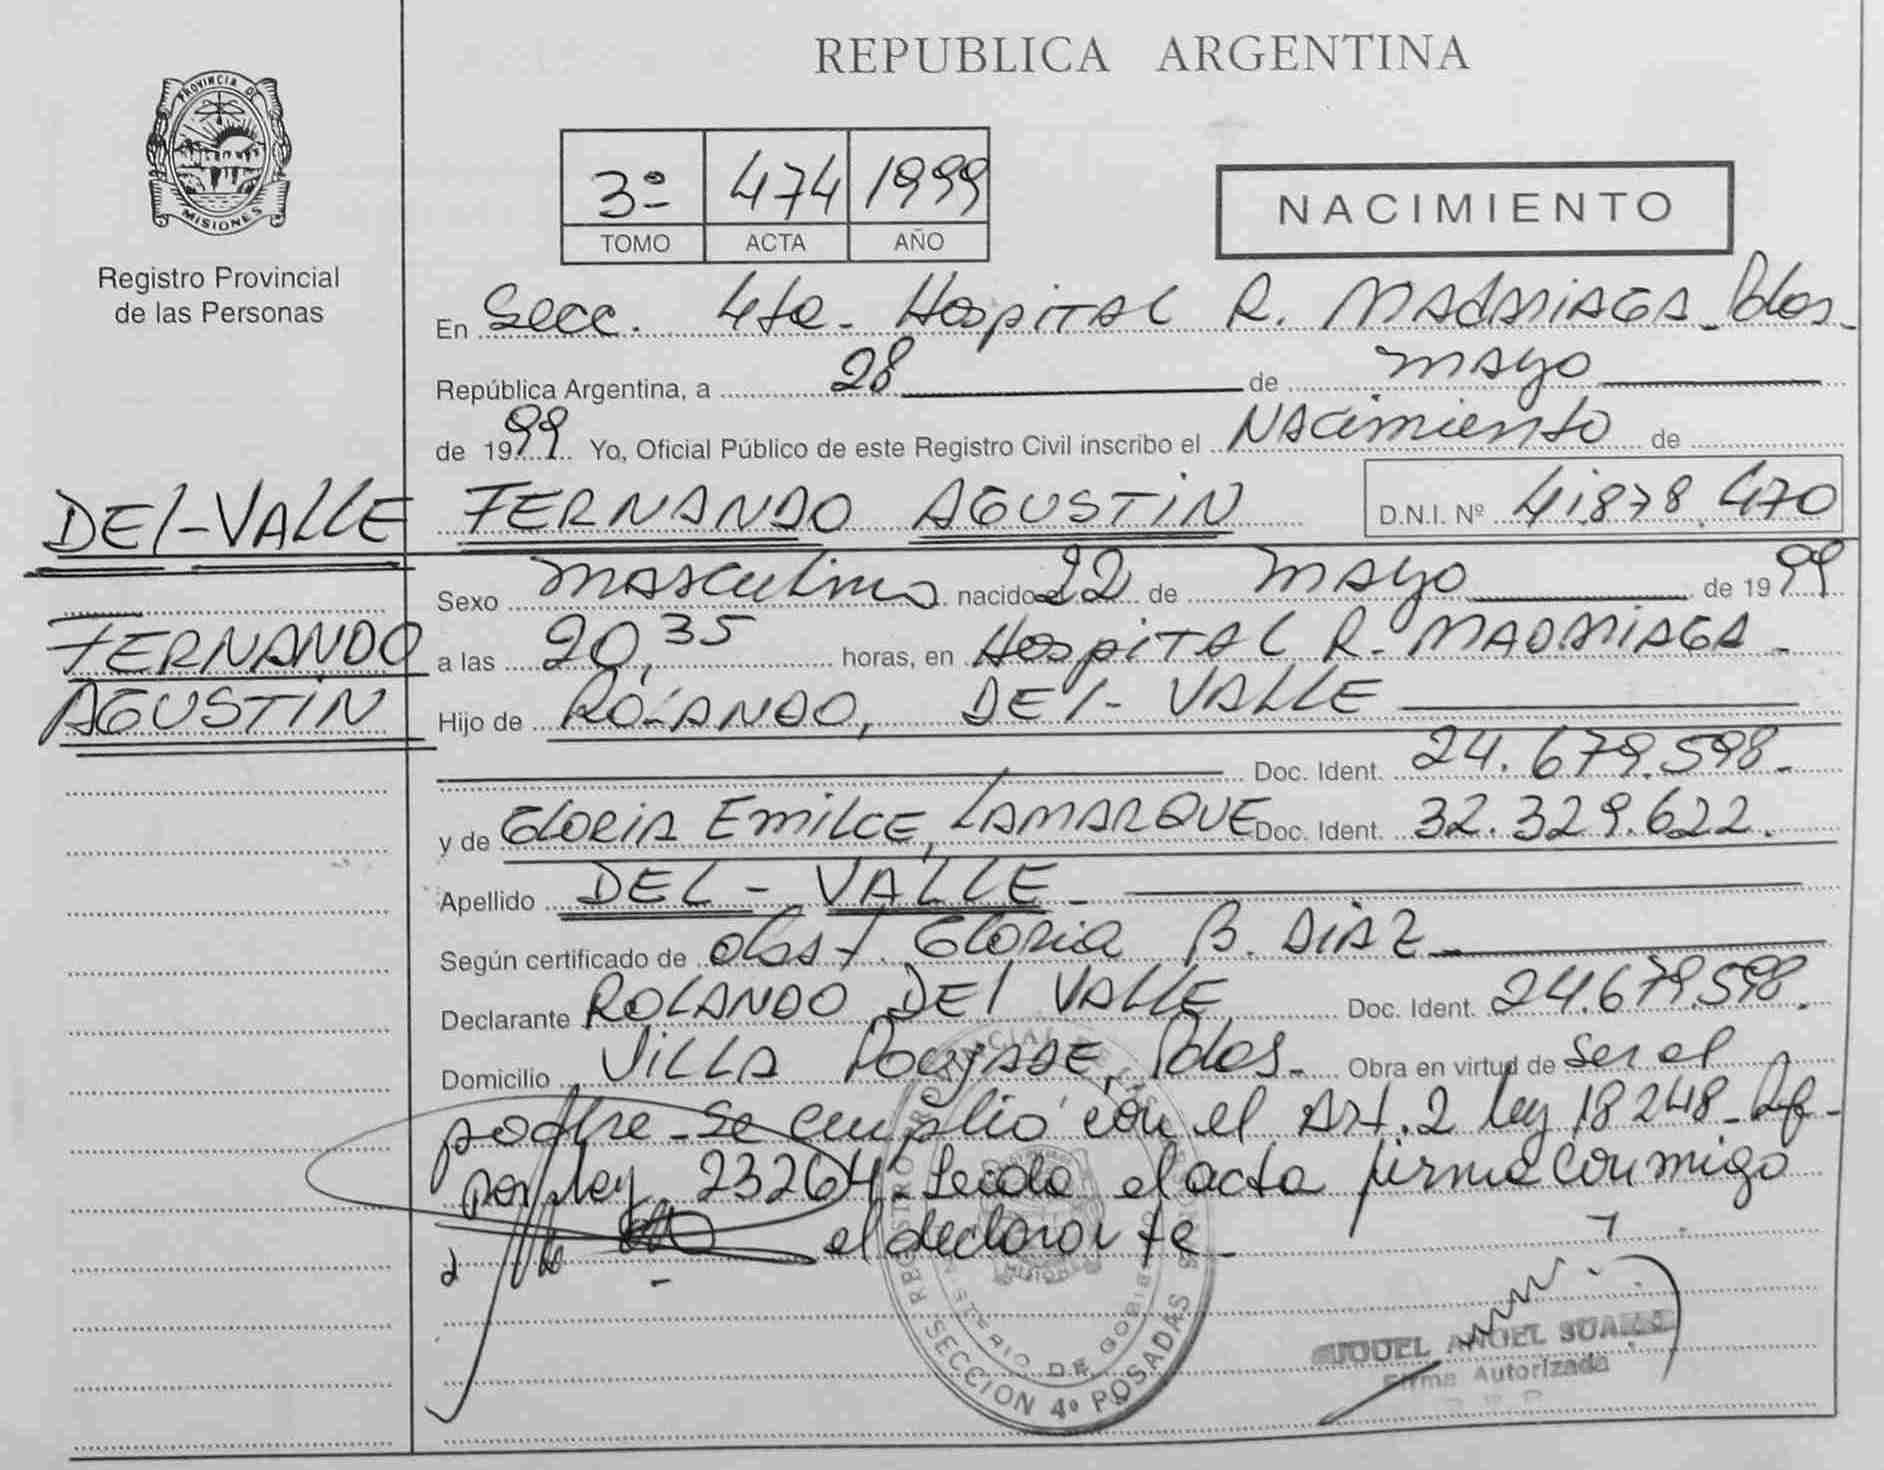 REPUBLICA ARGENTINA
PROVINCIA DE
MISIONES
Registro Provincial
de las Personas
3º 474 1999
TOMO ACTA AÑO
NACIMIENTO
En Secc. 4ta - Hospital R. MADARIAGA - Pdas -
República Argentina, a 28 de mayo
de 1999 Yo, Oficial Público de este Registro Civil inscribo el NAcimiento de
DEl-VALLE FERNANDO AGUSTIN D.N.I. Nº 41.878.470
Sexo masculino nacido 22 de mayo de 1999
FERNANDO a las 20,35 horas, en Hospital R. MADARIAGA -
AGUSTIN Hijo de ROLANDO, DEl - VALLE
Doc. Ident. 24.679.598.-
y de GLORIA EmiLCE, LAMARQUE Doc. Ident. 32.329.622.
Apellido DEL - VALLE -
Según certificado de obst. Gloria B. DIAZ -
Declarante ROLANDO DEl VALLE Doc. Ident. 24.679.598.
Domicilio ViLLA POUJADE, Pdas. - Obra en virtud de ser el
padre - Se cumplió con el Art. 2 ley 18248 -
por ley 23264 - Leida el acta firma conmigo
el declarante -
REGISTRO PROVINCIAL DE LAS PERSONAS
MINISTERIO DE GOBIERNO
SECCION 4º POSADAS
MIGUEL ANGEL SUAREZ
Firma Autorizada